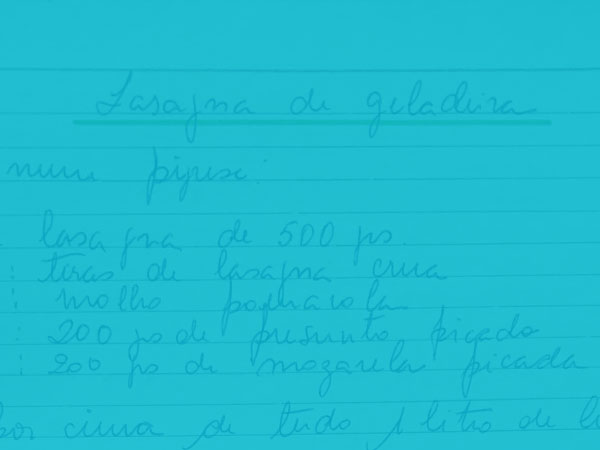 Lasagna de geladeira
num pirex:
lasagna de 500 grs.
: tiras de lasagna crua
: molho
: 200 grs de presunto picado
: 200 grs de mozarela picada
por cima de tudo 1 litro de